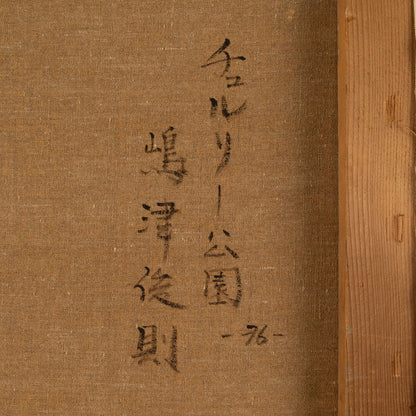 チュルリー公園
-76-
嶋津俊則